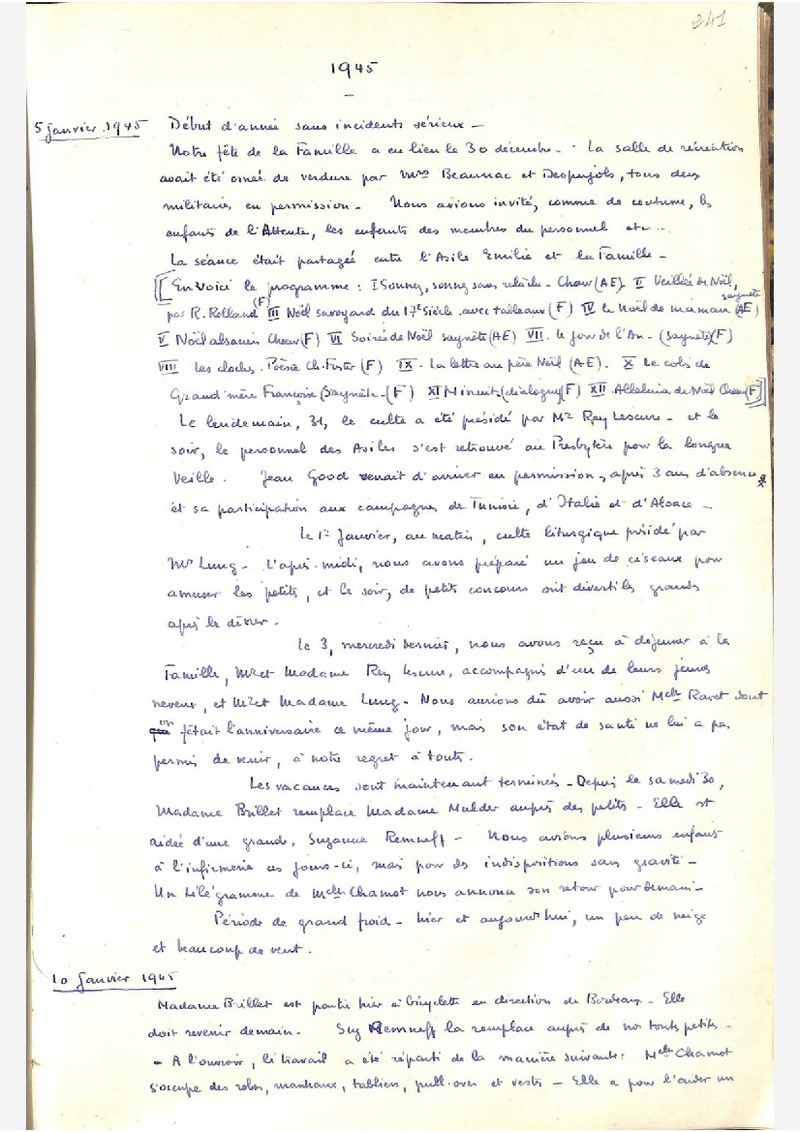 241
1945
5 Janvier 1945 Début d'année sans incidents sérieux –
Notre fête de la Famille a eu lieu le 30 décembre – La salle de récréation
avait été ornée de verdure par Mrs Beaunac et Despujols, tous deux
militaires en permission – Nous avions invité, comme de coutume, les
enfants de l'Attente, les enfants des membres du personnel etc...
La séance était partagée entre l'Asile Emilie et la Famille –
[En Voici le programme : I Sonnez, sonnez sans relâche – Chœur (AE). II Veillée de Noël,
par R. Rolland (F) III Noël savoyard du 17e Siècle avec tableaux (F) IV le Noël de maman saynète (AE)
V Noël alsacien Chœur (F) VI Soirée de Noël saynète (AE) VII le jour de l'An – (saynète) (F)
VIII Les cloches. Poésie Ch. Fuster (F) IX – La lettre au père Noël (AE). X Le colis de
Grand'mère Françoise (Saynète – (F) XI Minuit (dialogue) (F) XII Alleluia de Noël Chœur (F)]
Le lendemain, 31, le culte a été présidé par Mr Rey Lescure – et le
soir, le personnel des Asiles s'est retrouvé au Presbytère pour la longue
Veille. Jean Good venait d'arriver en permission, après 3 ans d'absence
et sa participation aux campagnes de Tunisie, d'Italie et d'Alsace –
Le 1er Janvier, au matin, culte liturgique présidé par
Mr Lung – L'après-midi, nous avons préparé un jeu de ciseaux pour
amuser les petits, et le soir, de petits concours ont diverti les grands
après le dîner.
Le 3, mercredi dernier, nous avons reçu à déjeuner à la
Famille, Mr et Madame Rey Lescure, accompagnés d'un de leurs jeunes
neveux, et Mr et Madame Lung – Nous aurions dû avoir aussi Melle Ravet dont
on fêtait l'anniversaire ce même jour, mais son état de santé ne lui a pas
permis de venir, à notre regret à toutes.
Les vacances sont maintenant terminées – Depuis le samedi 30,
Madame Brillet remplace Madame Mulder auprès des petits – Elle est
aidée d'une grande, Suzanne Remneff – Nous avions plusieurs enfants
à l'infirmerie ces jours-ci, mais pour des indispositions sans gravité –
Un télégramme de Melle Chamot nous annonce son retour pour demain –
Période de grand froid – hier et aujourd'hui, un peu de neige
et beaucoup de vent.
10 Janvier 1945
Madame Brillet est partie hier à bicyclette en direction de Bordeaux – Elle
doit revenir demain – Suz Remneff la remplace auprès de nos touts petits –
– A l'ouvroir, le travail a été réparti de la manière suivante : Melle Chamot
s'occupe des robes, manteaux, tabliers, pull-over et vestes – Elle a pour l'aider un